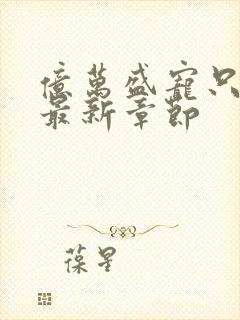 億萬盛寵只
最新章節
葆星